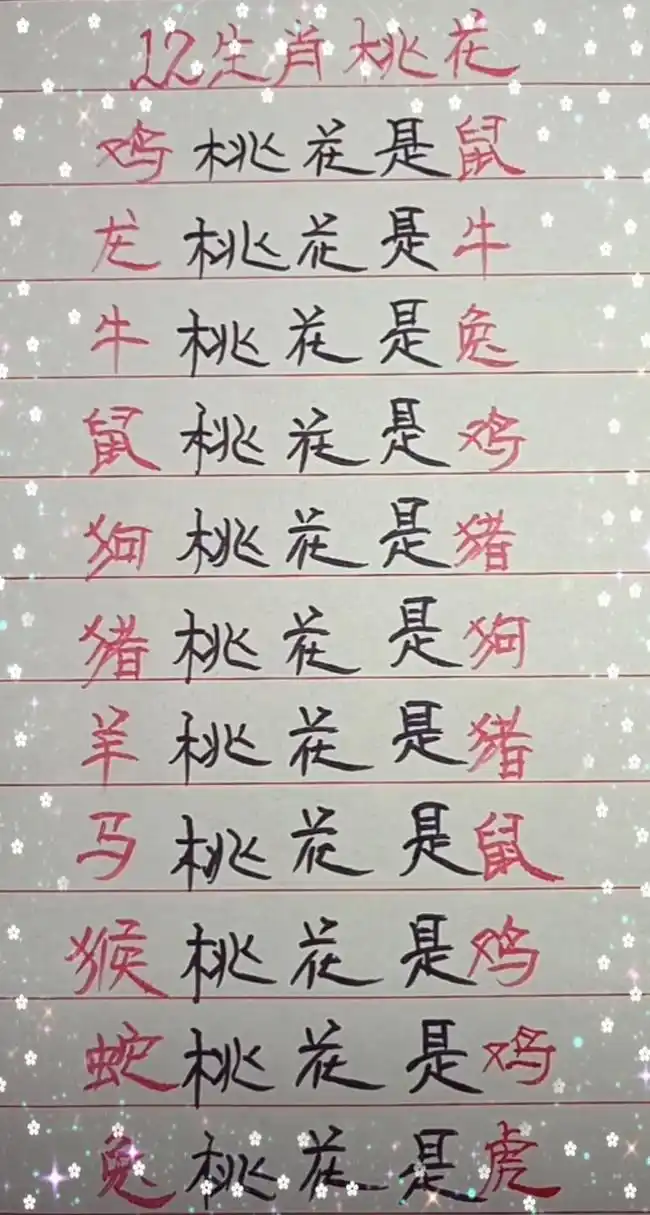 12生肖桃花
鸡桃花是鼠
龙桃花是牛
牛桃花是兔
鼠桃花是鸡
狗桃花是猪
猪桃花是狗
羊桃花是猪
马桃花是鼠
猴桃花是鸡
蛇桃花是鸡
兔桃花是虎